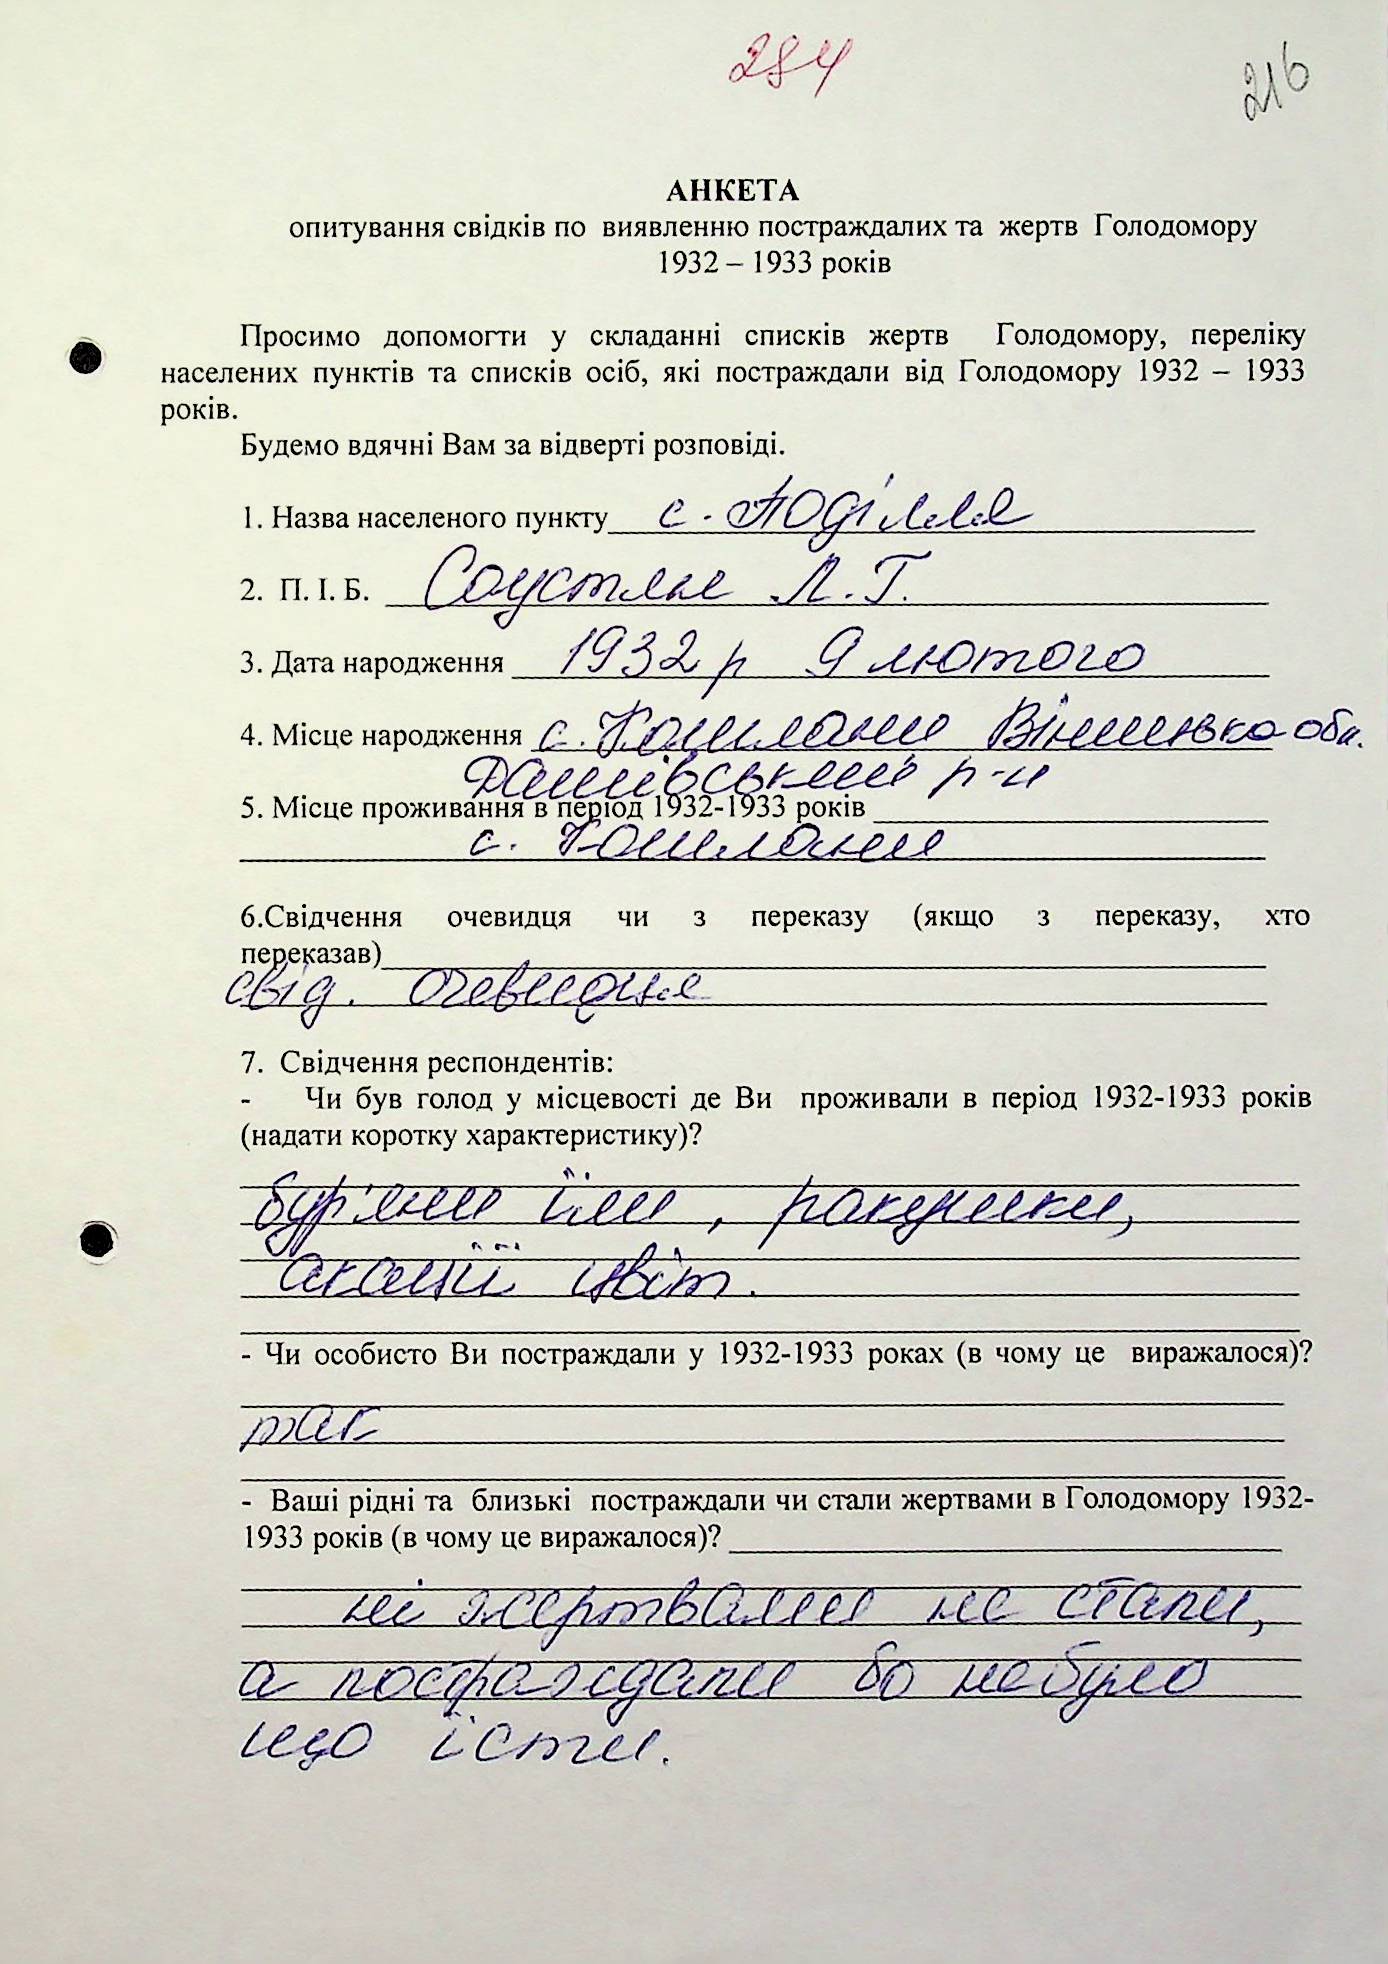 284
216
АНКЕТА
опитування свідків по виявленню постраждалих та жертв Голодомору
1932 – 1933 років
Просимо допомогти у складанні списків жертв Голодомору, переліку
населених пунктів та списків осіб, які постраждали від Голодомору 1932 – 1933
років.
Будемо вдячні Вам за відверті розповіді.
1. Назва населеного пункту с. Поділля
2. П. І. Б. Л. Г.
3. Дата народження 1932 р 9 лютого
4. Місце народження с. Кошлани Вінницька обл.
Дашівський р-н
5. Місце проживання в період 1932-1933 років
с. Кошлани
6.Свідчення очевидця чи з переказу (якщо з переказу, хто
переказав)
свід. очевидця
7. Свідчення респондентів:
- Чи був голод у місцевості де Ви проживали в період 1932-1933 років
(надати коротку характеристику)?
бур'яни їли, ракушки,
акації цвіт.
- Чи особисто Ви постраждали у 1932-1933 роках (в чому це виражалося)?
так
- Ваші рідні та близькі постраждали чи стали жертвами в Голодомору 1932-
1933 років (в чому це виражалося)?
ні жертвами не стали,
а постраждали бо не було
що їсти.